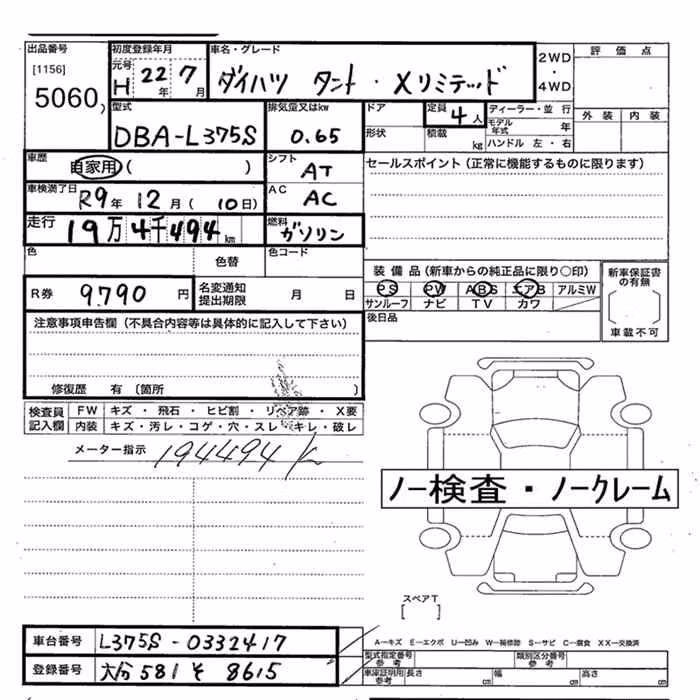 出品番号 初度登録年月 車名・グレード 2WD・4WD 評価点
[1156] 元号 H 22年 7月 ダイハツ タント・Xリミテッド
5060
外装 内装
型式 排気量又はkw ドア 定員 4人 ディーラー・並行
DBA-L375S 0.65 形状 積載 kg モデル年式 年
ハンドル 左・右
車歴 自家用 ( ) シフト AT セールスポイント(正常に機能するものに限ります)
車検満了日 R9年 12月 (10日) AC AC
走行 19万4千494km 燃料 ガソリン
色 色替 色コード
装備品(新車からの純正品に限り○印) 新車保証書の有無
R券 9790円 名変通知提出期限 月 日 PS PW ABS エアB アルミW
サンルーフ ナビ TV カワ
注意事項申告欄(不具合内容等は具体的に記入して下さい) 後日品 車載不可
修復歴 有 〔箇所 〕
検査員記入欄 FW キズ・飛石・ヒビ割・リペア跡・X要
内装 キズ・汚レ・コゲ・穴・スレ・キレ・破レ
メーター指示 194494 K
ノー検査・ノークレーム
スペアT
[ ]
車台番号 L375S-0332417 A-キズ E-エクボ U-凹み W-補修跡 S-サビ C-腐食 XX-交換済
型式指定番号 参考 類別区分番号 参考
登録番号 大分 581 そ 8615 車庫証明用 参考 長さ cm 幅 cm 高さ cm